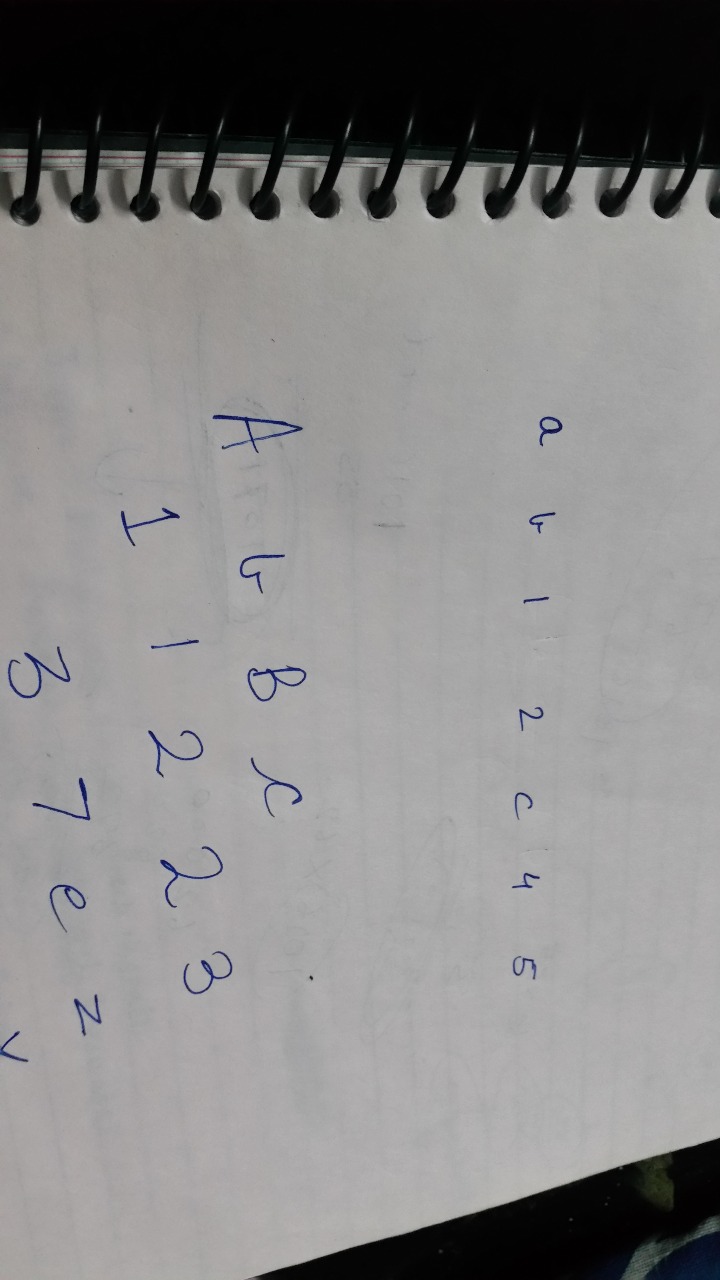 a b 1 2 c 4 5
A b B c
1 1 2 2 3
3 7 e z
v